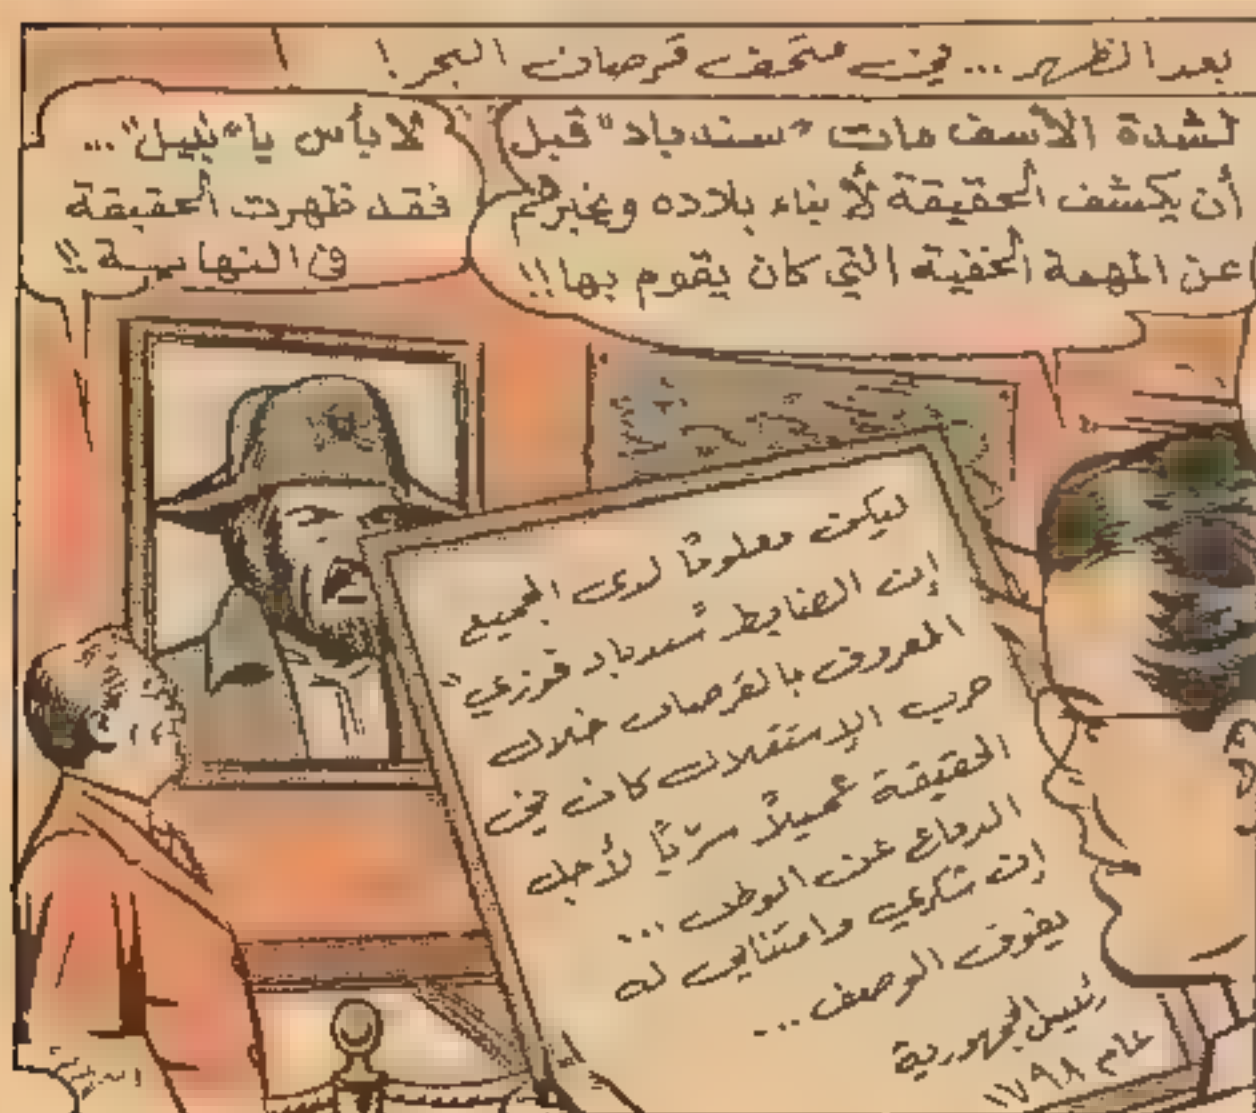 بعد الظهر... في متحف قرصان البحر!
لشدة الأسف مات "سندباد" قبل
أن يكشف الحقيقة لأبناء بلاده ويخبرهم
عن المهمة الخفية التي كان يقوم بها!!
لا بأس يا "نبيل"...
فقد ظهرت الحقيقة
في النهاية!!
ليكن معلومًا لدى الجميع
إن الضابط "سندباد فوزي"
المعروف بالقرصان خلال
حرب الإستقلال كان في
الحقيقة عميلاً سريًا لأجل
الدفاع عن الوطن...
إن شكري وامتناني له
يفوق الوصف...
رئيس الجمهورية
عام ١٧٩٨